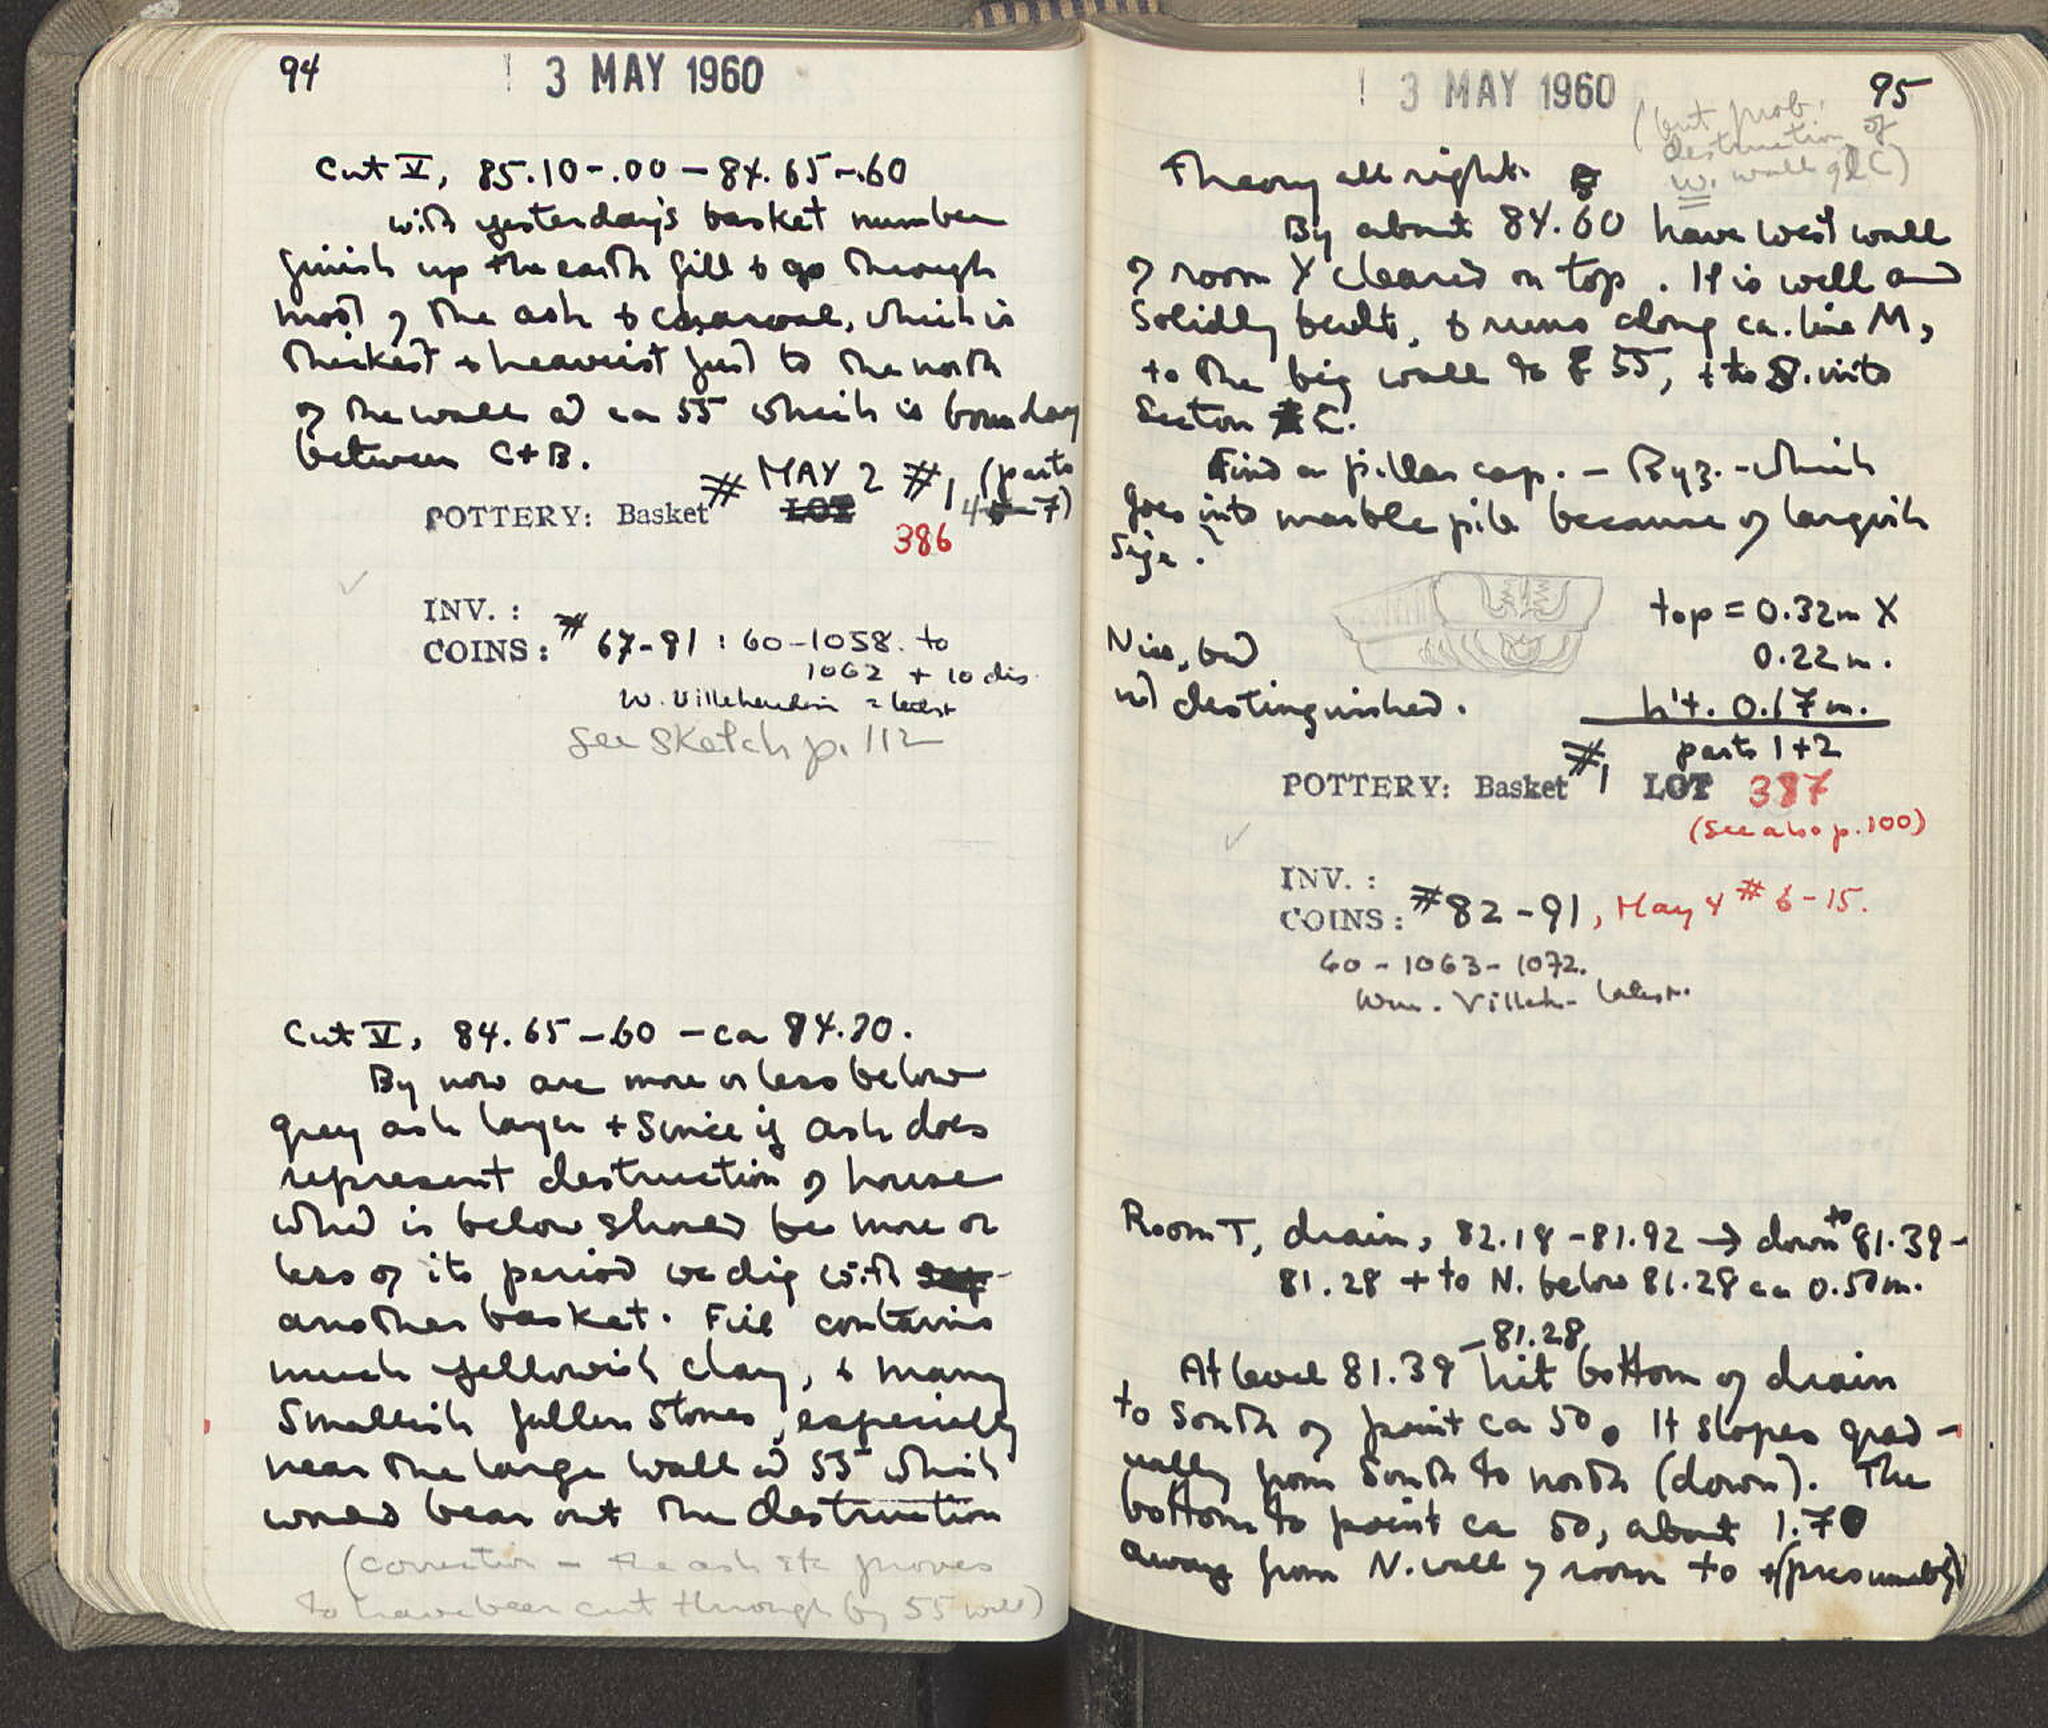 94
3 MAY 1960
Cut V, 85.10-.00 - 84.65-.60
with yesterday's basket number
finish up the earth fill & go through
most of the ash & charcoal, which is
thickest & heaviest just to the north
of the wall at ca 55 which is boundary
between C+B.
# MAY 2 #1 (parts
POTTERY: Basket LOT 4-7)
386
INV. :
COINS: # 67-81 : 60-1058 to
1062 + 10 dis.
W. Villehardouin = latest
See sketch p. 112
Cut V, 84.65-.60 - ca 84.20.
By now are more or less below
grey ash layer & since if ash does
represent destruction of house
what is below should be more or
less of its period we dig with
another basket. Fill contains
much yellowish clay, & many
smallish fallen stones, especially
near the large wall at 55 which
would bear out the destruction
(correction - the ash etc proves
to have been cut through by 55 wall)
3 MAY 1960
95
(but prob.
destruction of
W. wall of C)
Theory all right.
By about 84.60 have west wall
of room Y cleared on top. It is well and
solidly built, & runs along ca. line M,
to the big wall to 55, + to S. into
Section C.
Find a pillar cap. - Byz. - which
goes into marble pile because of largish
size.
top = 0.32m X
0.22 m.
h't. 0.17 m.
Nice, but
not distinguished.
parts 1+2
POTTERY: Basket #1 LOT 387
(See also p. 100)
INV. :
COINS: # 82-91, May 4 # 6-15.
60-1063-1072.
Wm. Villeh- latest.
Room T, drain, 82.18-81.92 → down to 81.39-
81.28 + to N. below 81.28 ca 0.50m.
At level 81.39 -81.28 hit bottom of drain
to south of point ca 50. It slopes grad-
ually from South to north (down). The
bottom to point ca 50, about 1.70
away from N. wall of room to + (presumably)